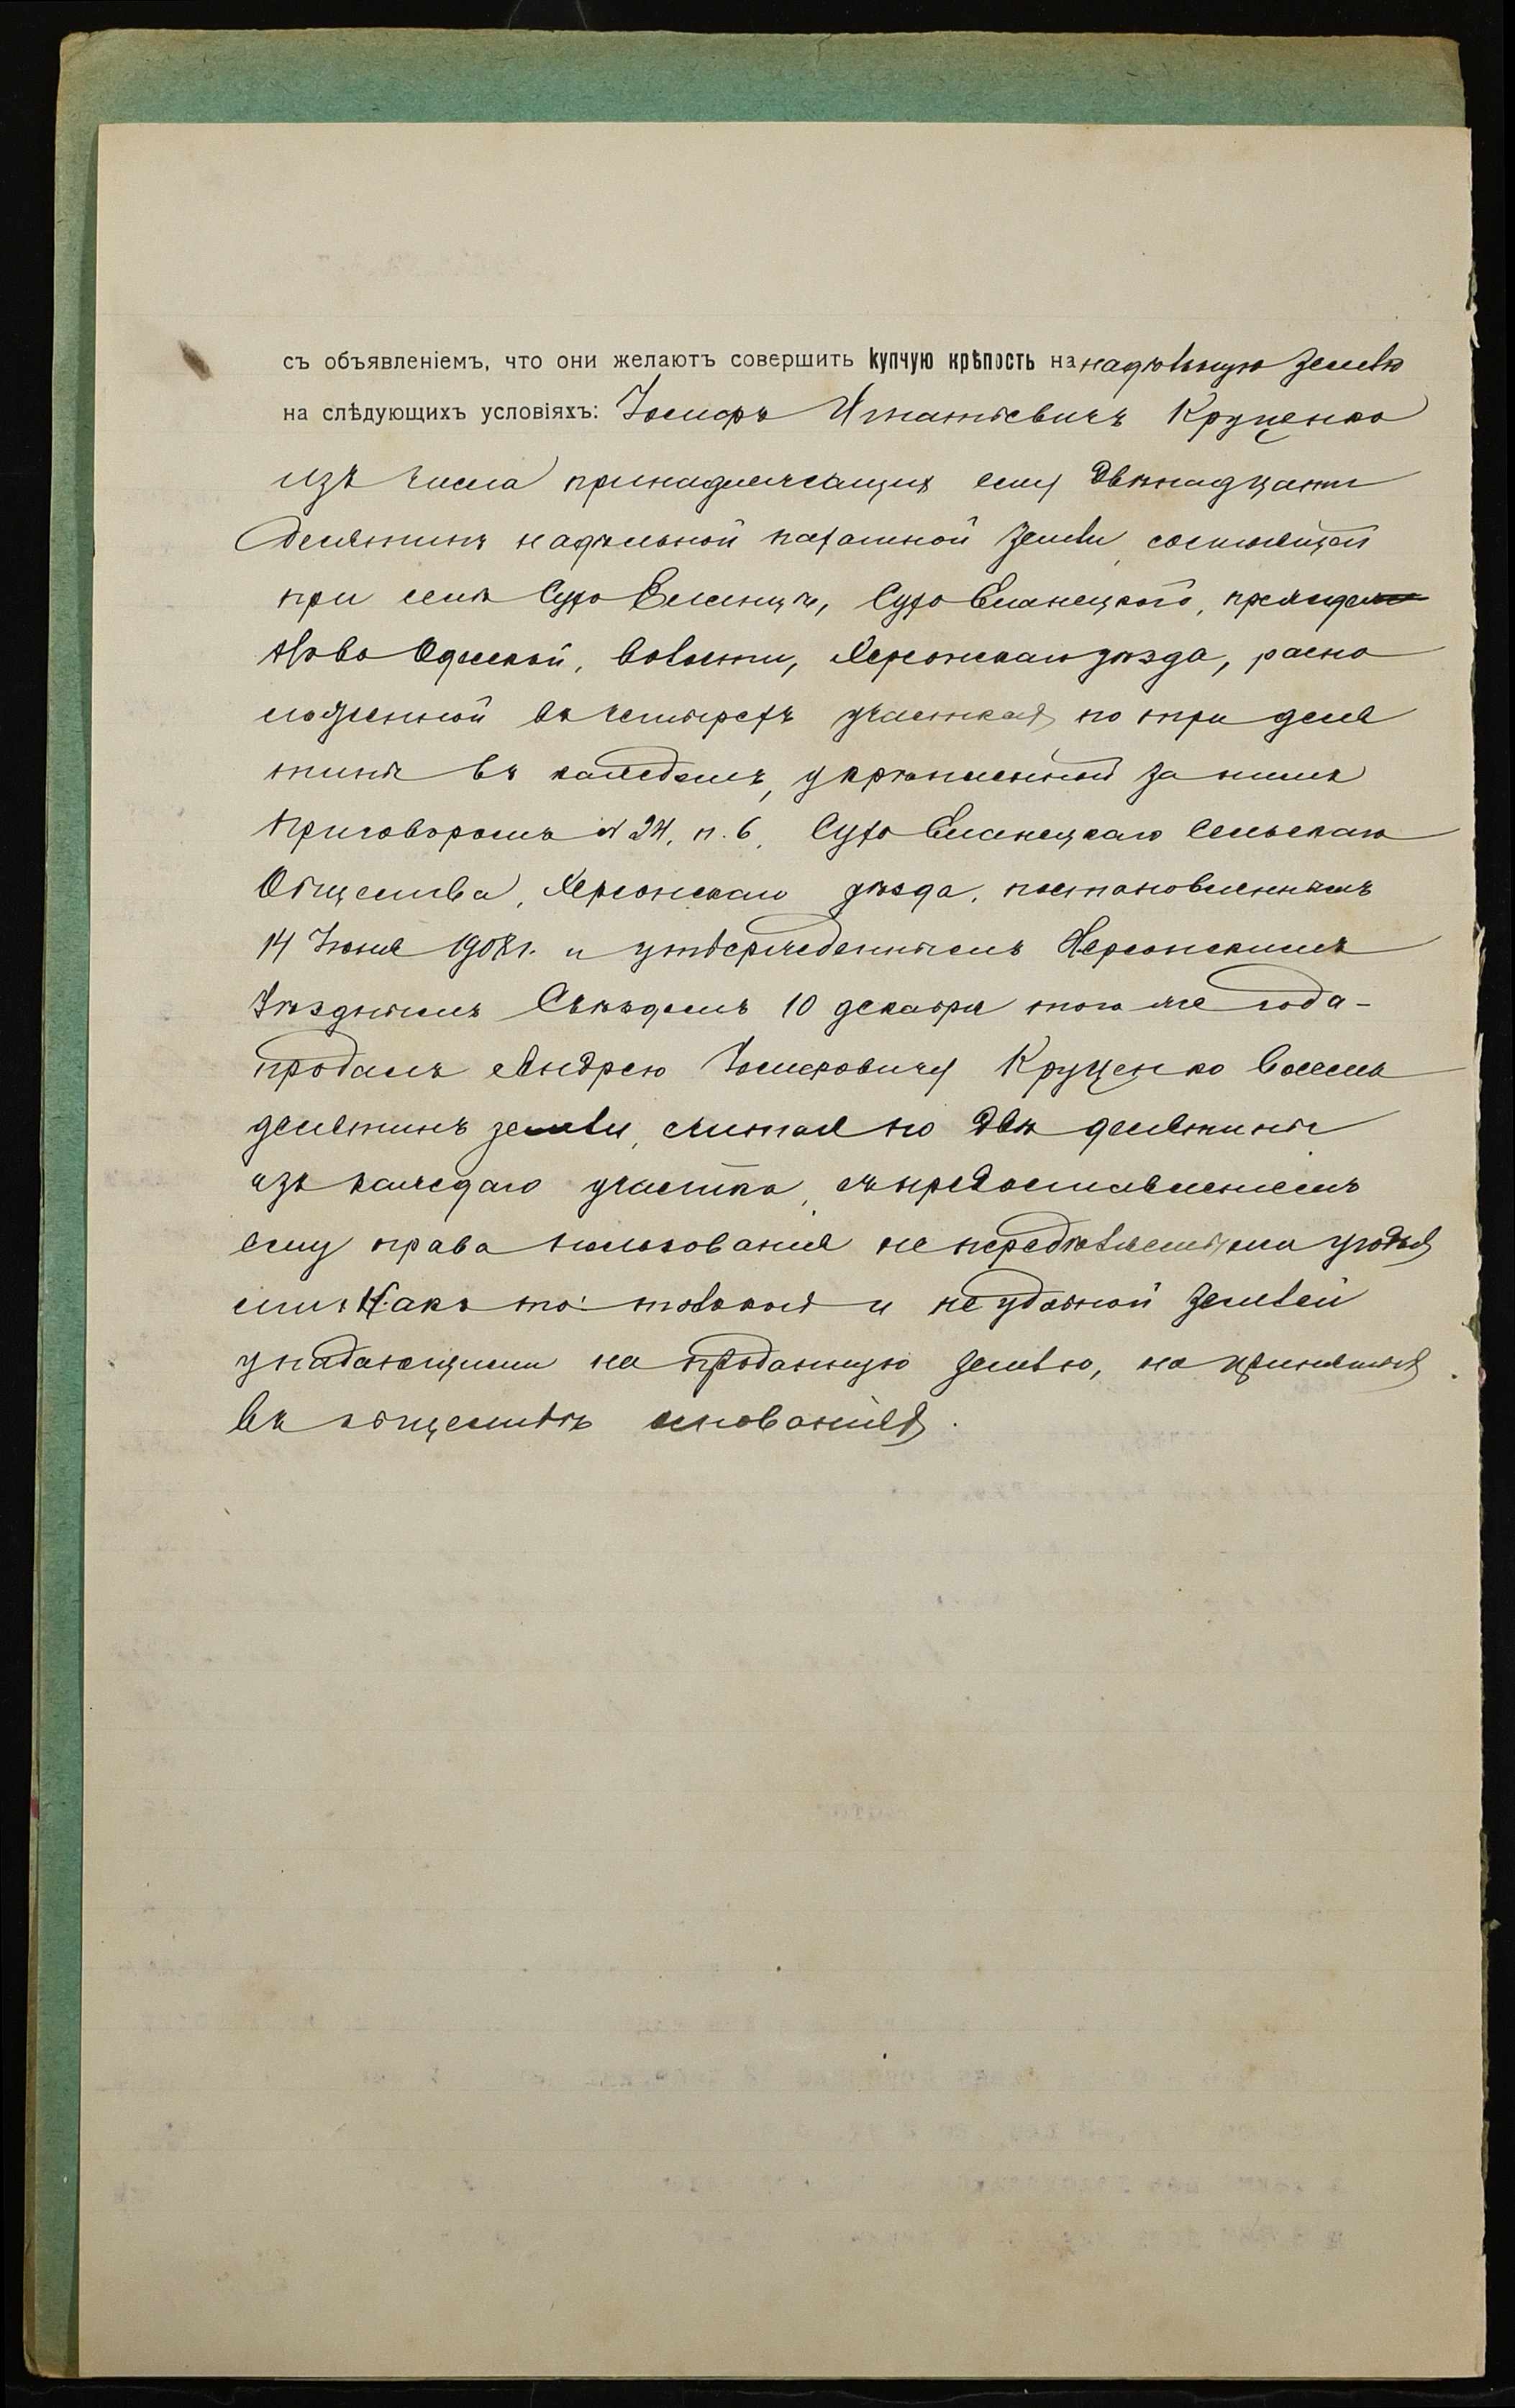 съ объявленіемъ, что они желаютъ совершить купчую крѣпость на надѣльную землю
на слѣдующихъ условіяхъ: Іосифъ Игнатьевичъ Круценко
изъ числа принадлежащихъ ему двѣнадцати
десятинъ надѣльной пахатной земли, состоящей
при селѣ Сухо Еланцѣ, Сухо Еланецкого,
Ново Одесской, волости, Херсонскаго уѣзда, распо
ложенной въ четырехъ участкахъ по три деся
тины въ каждомъ, укрѣпленной за нимъ
приговоромъ № 24, п. 6, Сухо Еланецкаго Сельскаго
Общества, Херсонскаго уѣзда, постановленнымъ
14 Іюня 1908 г. и утвержденнымъ Херсонскимъ
Уѣзднымъ Съѣздомъ 10 декабря того же года -
продалъ Андрею Іосифовичу Круценко восемь
десятинъ земли, считая по двѣ десятины
изъ каждаго участка, съ предоставленіемъ
ему права пользованія не передѣляемыми угодья
ми, какъ то: толокой и неудобной землей
упадающими на проданную землю, на принятыхъ
въ обществѣ основаніяхъ.